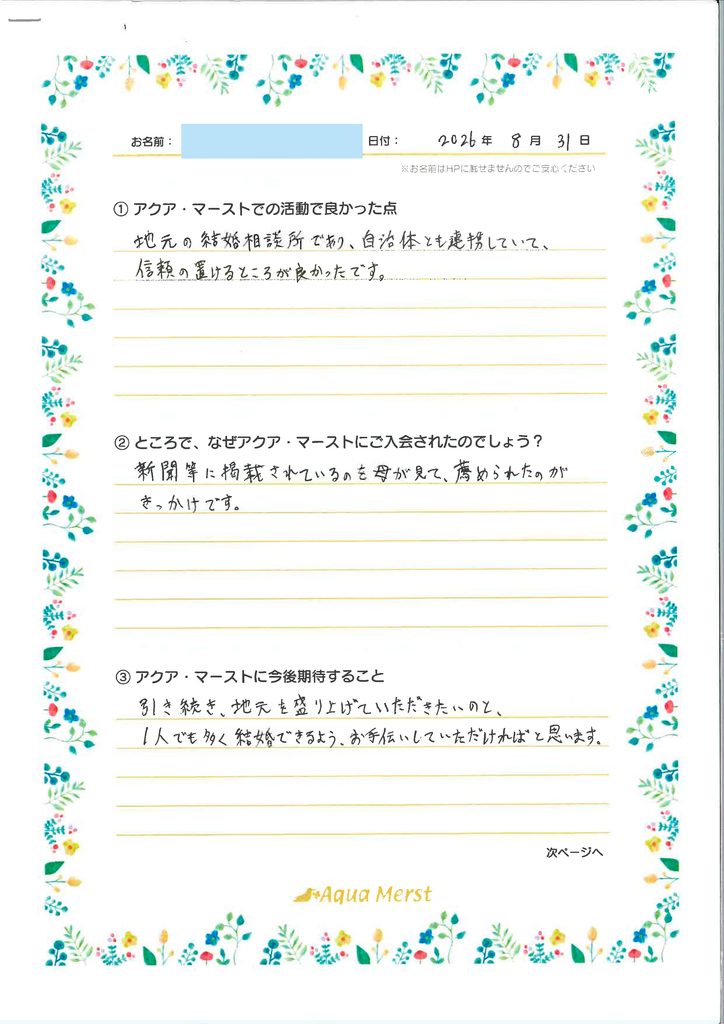 お名前： 日付： 2026年 8月 31日
※お名前はHPに載せませんのでご安心ください
① アクア・マーストでの活動で良かった点
地元の結婚相談所であり、自治体とも連携していて、
信頼の置けるところが良かったです。
② ところで、なぜアクア・マーストにご入会されたのでしょう？
新聞等に掲載されているのを母が見て、薦められたのが
きっかけです。
③ アクア・マーストに今後期待すること
引き続き、地元を盛り上げていただきたいのと、
1人でも多く結婚できるよう、お手伝いしていただければと思います。
次ページへ
Aqua Merst